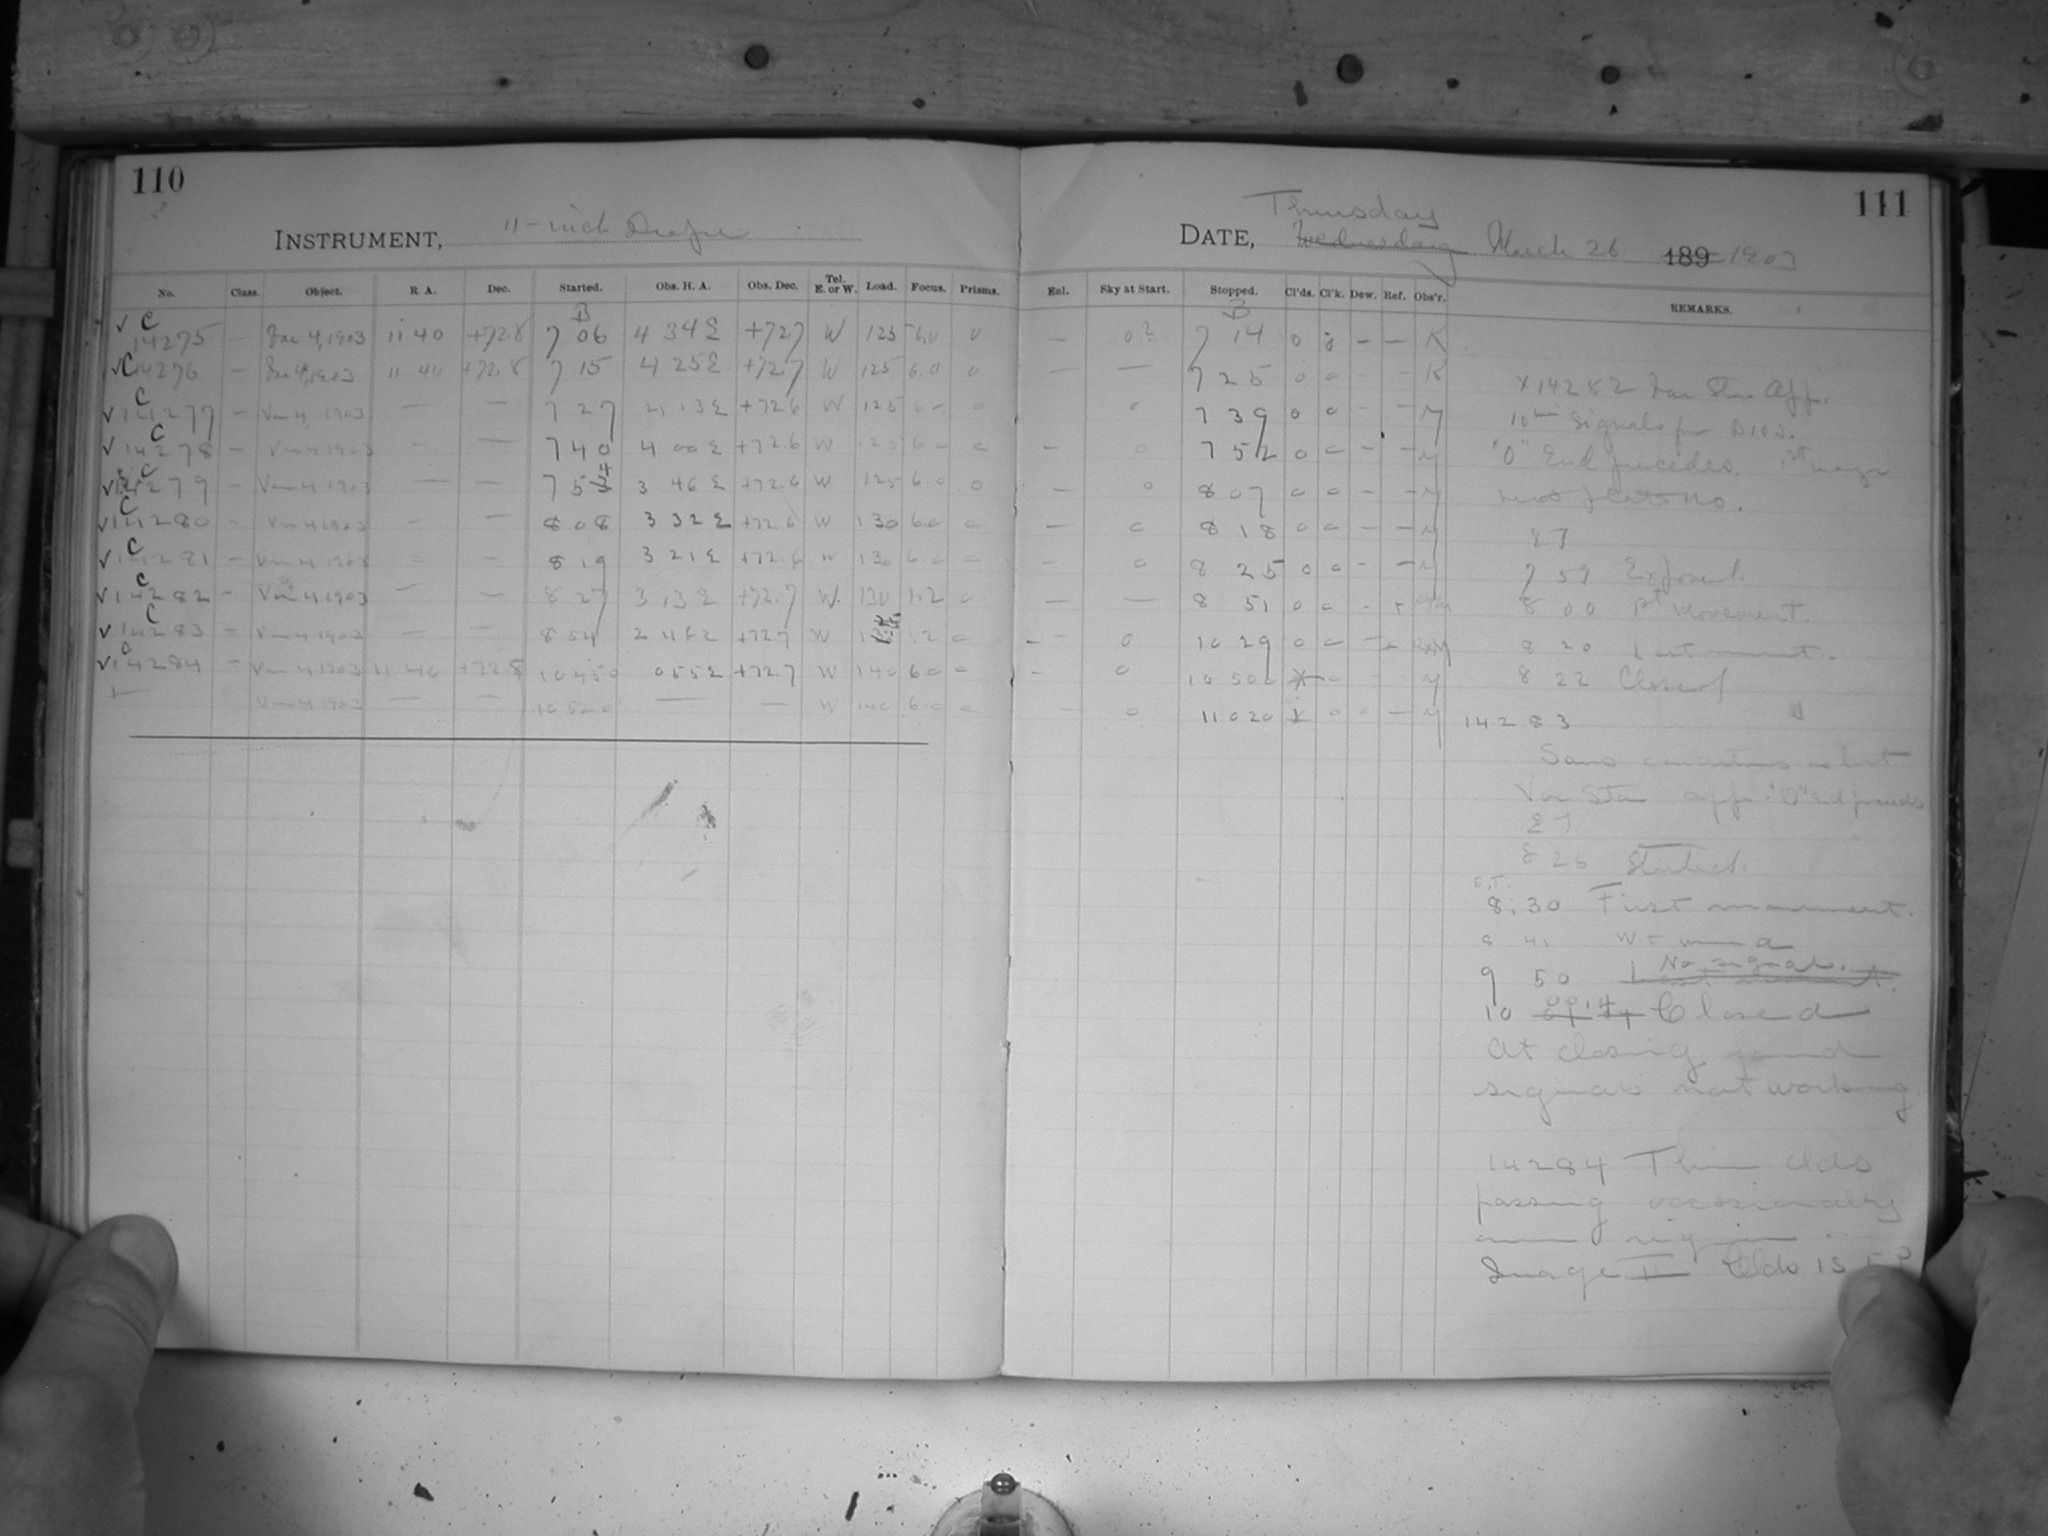 110
INSTRUMENT, 11-inch Draper
No. Class. Object. R. A. Dec. Started. Obs. H. A. Obs. Dec. Tel. E. or W. Load. Focus. Prisms.
B
✓ C 14275 — Var 4, 1903 11 40 +72.8 7 06 4 34 E +72.7 W 125 6.0 0
✓ C 14276 — Var 4, 1903 11 40 +72.8 7 15 4 25 E +72.7 W 125 6.0 0
✓ C 14277 — Var 4, 1903 — — 7 27 4 13 E +72.6 W 125 6.0 0
✓ C 14278 — Var 4 1903 — — 7 40 4 00 E +72.6 W 125 6.0 0
✓ C 14279 — Var 4 1903 — — 7 54 3 46 E +72.6 W 125 6.0 0
✓ C 14280 — Var 4 1903 — — 8 08 3 32 E +72.6 W 130 6.0 0
✓ C 14281 — Var 4 1903 — — 8 19 3 21 E +72.6 W 130 6.0 0
✓ C 14282 — Var 4 1903 — — 8 27 3 13 E +72.7 W 130 1.2 0
✓ C 14283 — Var 4 1903 — — 8 54 2 46 E +72.7 W 1.2 0
✓ C 14284 — Var 4 1903 11 40 +72.8 10 45 0 0 55 E +72.7 W 140 6.0 0
Var 4 1903 — — 10 52 0 — — W 140 6.0 0
111
Thursday
DATE, Wednesday March 26 189 1903
Enl. Sky at Start. Stopped. Cl'ds. Cl'k. Dew. Ref. Obs'r. REMARKS.
B
— 0? 7 14 0 0 — — K
— — 7 25 0 0 — — K
0 7 39 0 0 — M
— 0 7 52 0 0 — — M
— 0 8 07 0 0 — — M
— 0 8 18 0 0 — — M
— 0 8 25 0 0 — — M
— — 8 51 0 0 —
— 0 10 29 0 0 —
— 0 10 50 0 0 M
— 0 11 02 0 0 0 — M
x 14282 Var Star App.
10 min Signals for
"O" End precedes. 1st image
next plate No.
E T
7 59 Exposed
8 00 1st movement.
8 20 Last movement.
8 22 Closed
14283
Same conditions as last
Var Star app. "O" End precedes
E T
8 26 Started.
E.T.
8:30 First movement.
8 41
9 50 No signal.
10 00.4 Closed
At closing found
signals not working
14284 Thin Clds
passing occasionally
region
Image II Clds is